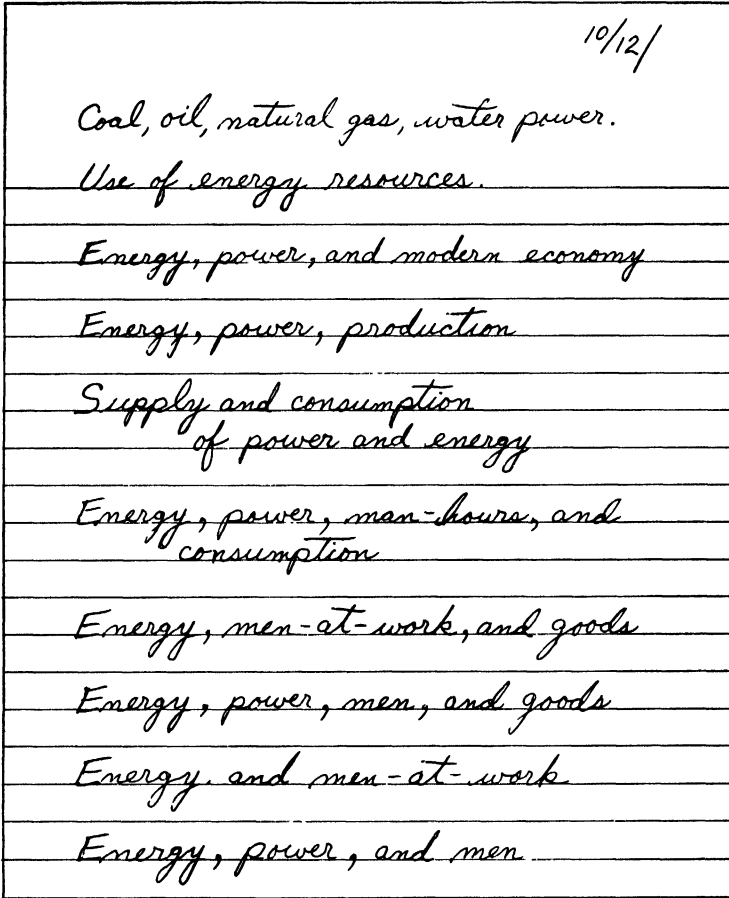 10/12/
Coal, oil, natural gas, water power.
Use of energy resources.
Energy, power, and modern economy
Energy, power, production
Supply and consumption
of power and energy
Energy, power, man-hours, and
consumption
Energy, men-at-work, and goods
Energy, power, men, and goods
Energy and men-at-work
Energy, power, and men